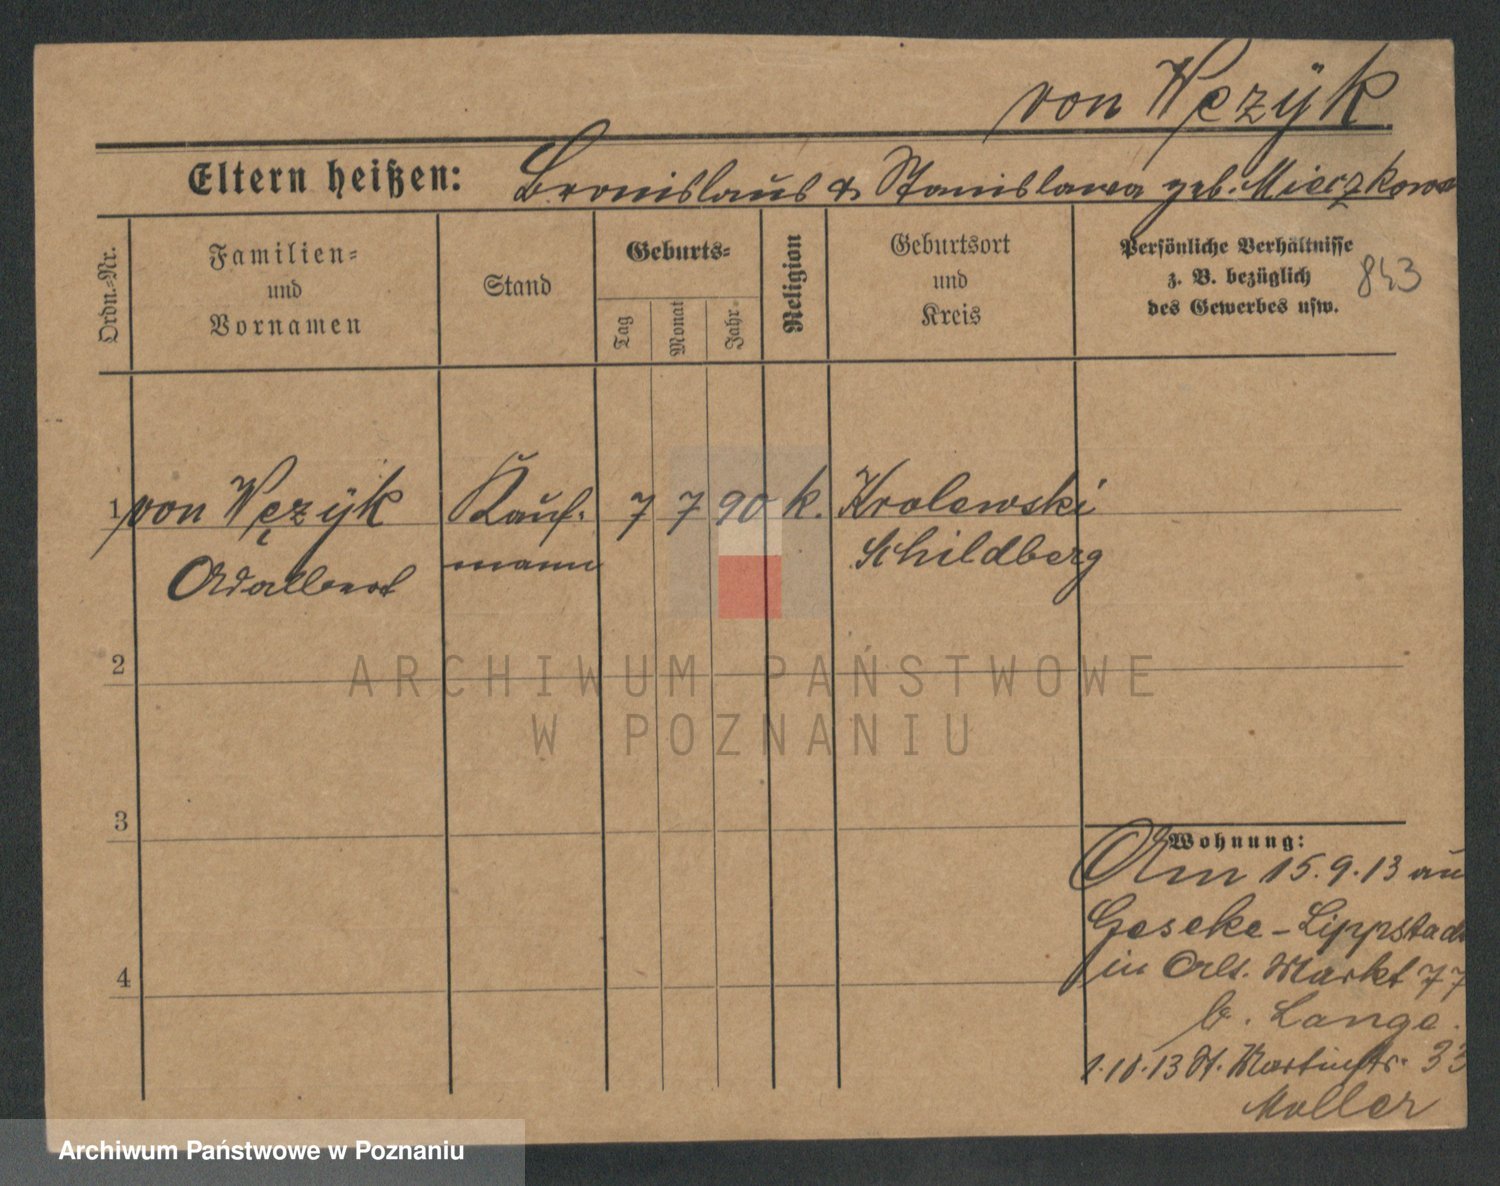 von Węzÿk
Eltern heißen: Bronislaus & Stanislawa geb. Mieczkows
Ordn.-Nr.
Familien-
und
Vornamen
Stand
Geburts-
Tag
Monat
Jahr-
Religion
Geburtsort
und
Kreis
Persönliche Verhältnisse
z. B. bezüglich
des Gewerbes usw.
843
1 von Węzÿk Kauf- 7 7 90 k. Krolewski
Adalbert mann Schildberg
2
3
4
ARCHIWUM PAŃSTWOWE
W POZNANIU
Wohnung:
Am 15.9.13 au
Geseke-Lippstadt
in Alt. Markt 77
b. Lange.
1.10.13 St. Martinstr. 33
Moller
Archiwum Państwowe w Poznaniu